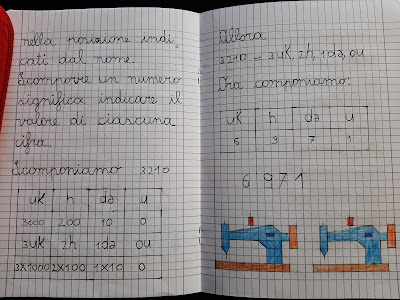 nella posizione indi-
cati dal nome.
Scomporre un numero
significa indicare il
valore di ciascuna
cifra.
Scomponiamo 3210
uK h da u
3000 200 10 0
3uK 2h 1da 0u
3X1000 2X100 1X10 0
Allora
3210 = 3uK, 2h, 1da, 0u
Ora componiamo:
uK h da u
6 9 7 1
6 971